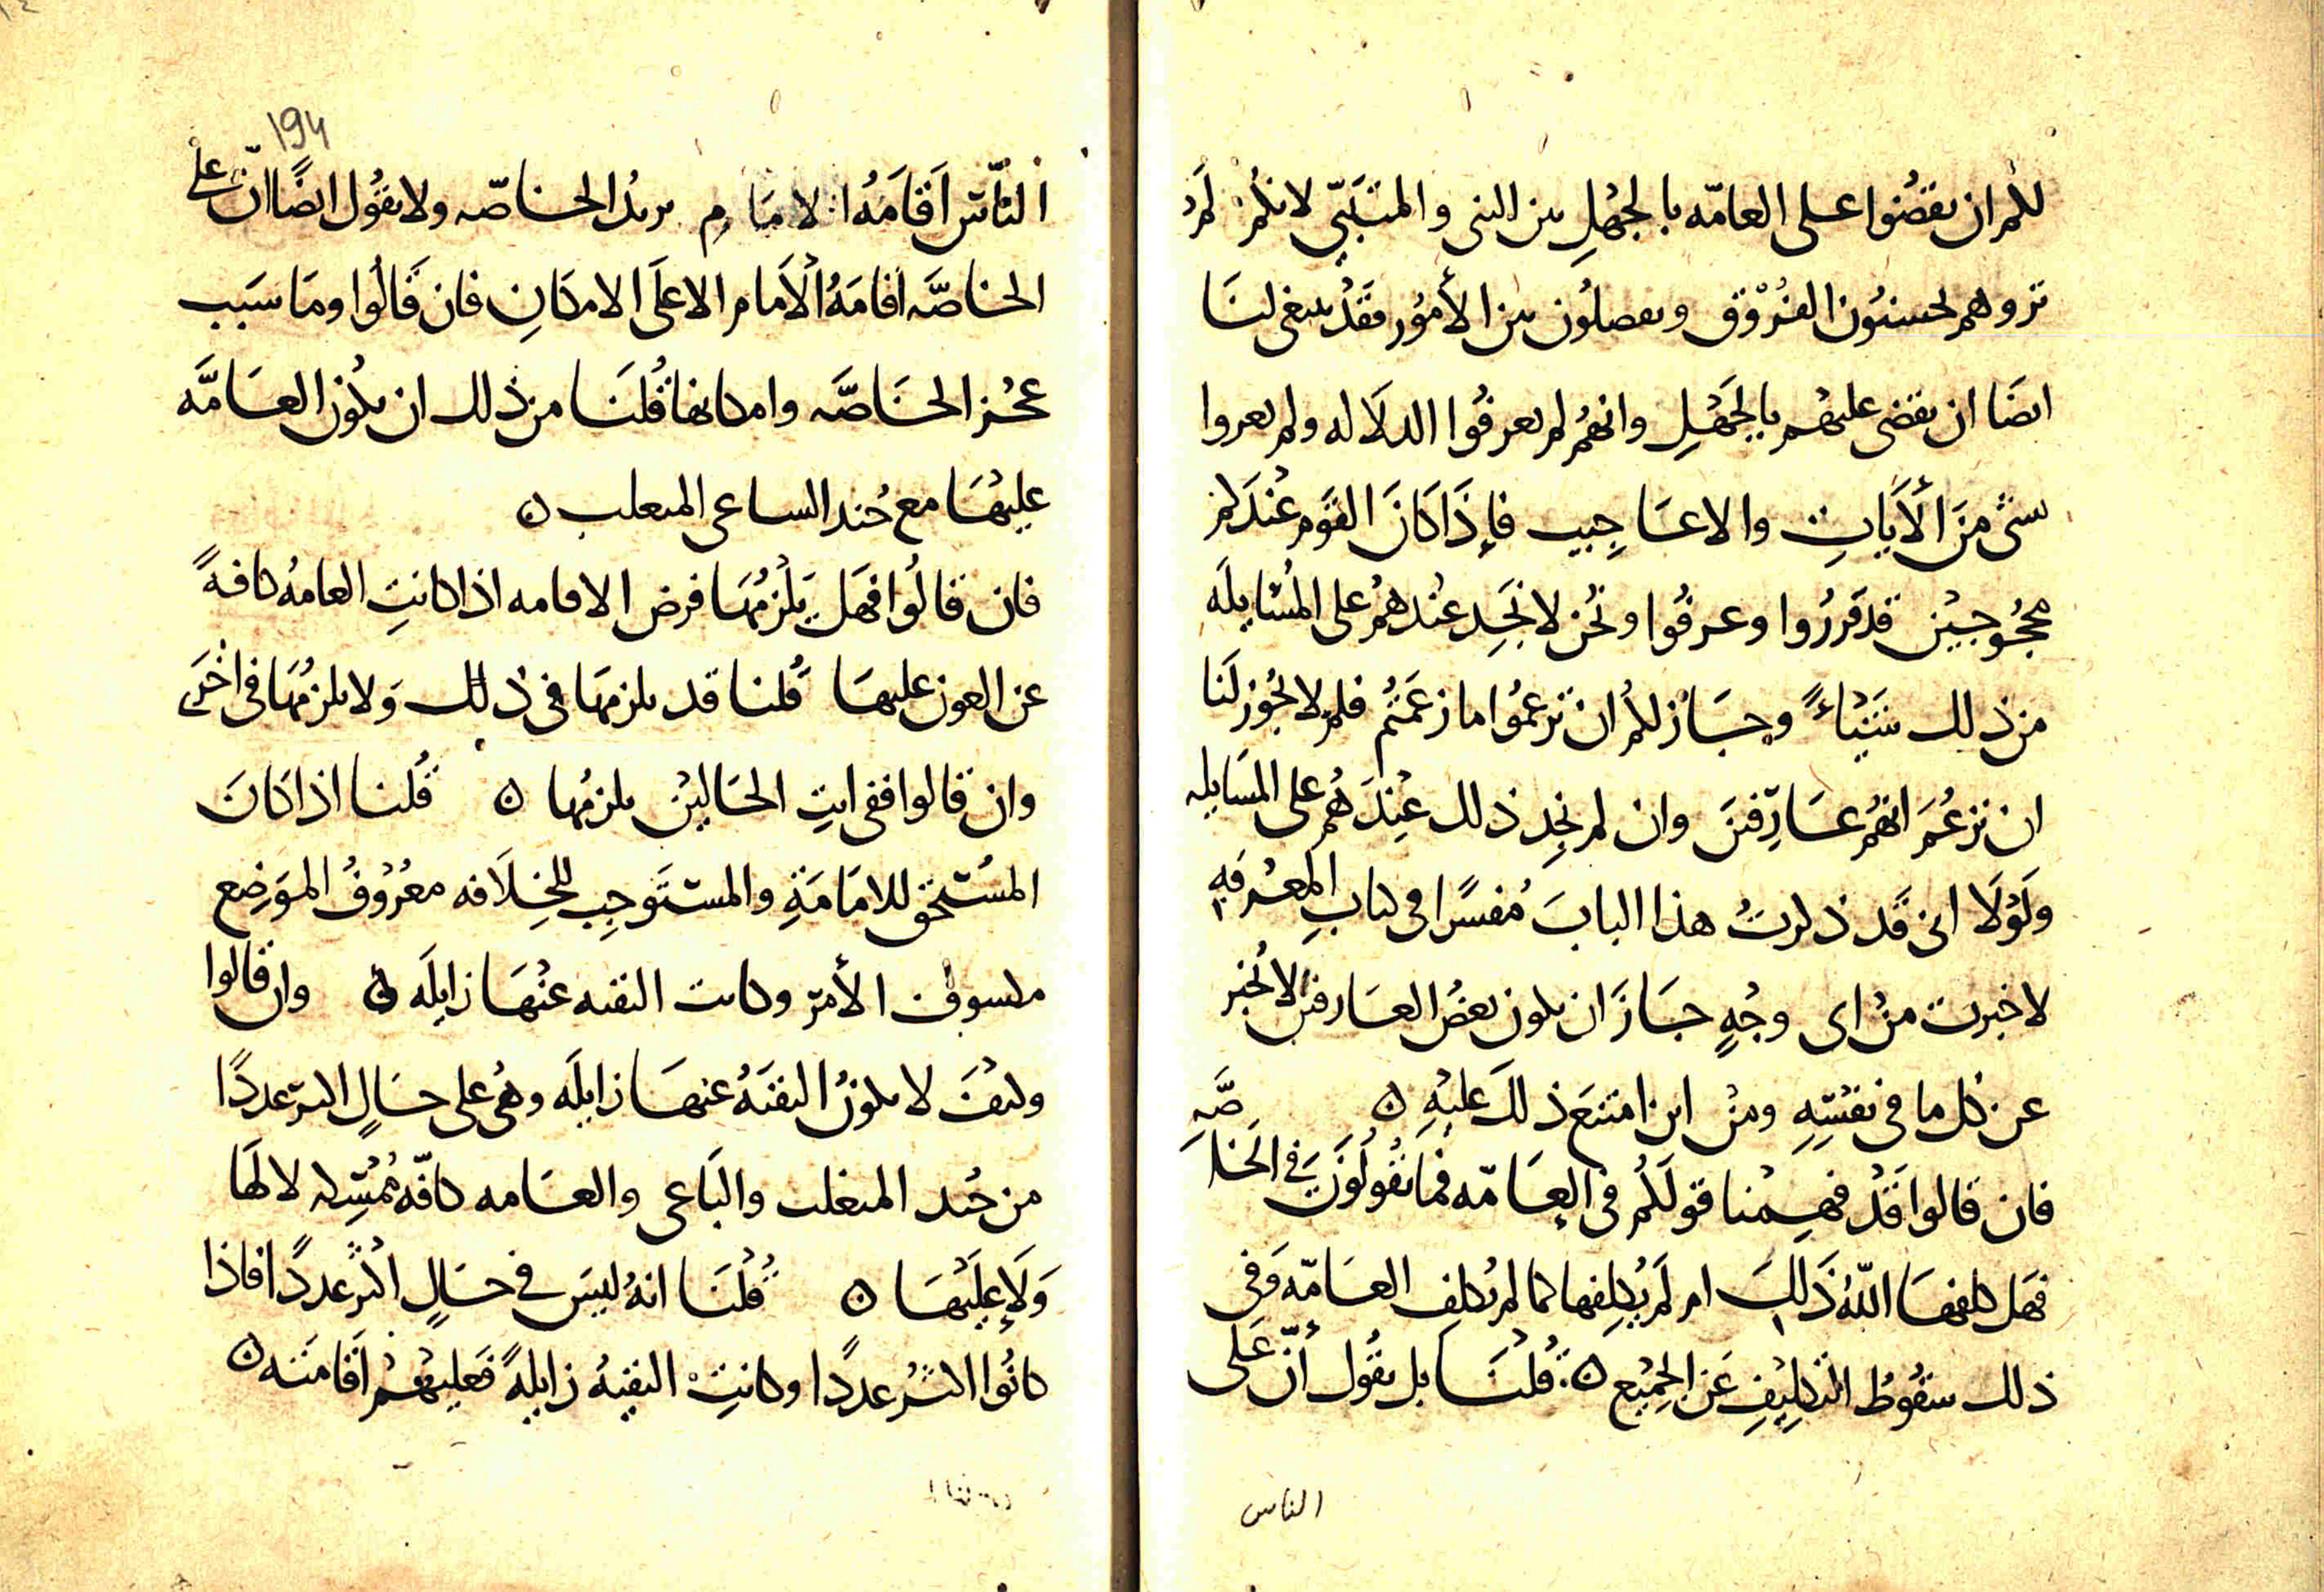 لكم ان تقضوا على العامّه بالجهْلِ بين النبى والمتنَبّى لانكم لَم
تروهم يحسنوُن الفُرْوْق ويفصلُون بين الأموُر فقَدْ ينبغى لنَا
ايضَا ان نقضى عليهم بالجَهْلِ وانهُم لم يعرفُوا الدلَاله ولم يعروا
شئ منَ الأَيَاتِ والاعَاجِيب فإِذَا كَانَ القوَم عْندَكم
محجُوجيْن قد قررُوا وعرفُوا ونحُن لا نجَدِ عنْدهمُ على المُسْايلَه
من ذلِك شَيْئاءً وجَاز لكمُ ان تزعمُوا ما زعَمَتُم فلم لا يجُوز لَنا
ان نزعُمَ انهُم عَارِفينَ وان لم نجِد ذلك عِندَهُم على المسَايله
ولَوْلَا انى قَد ذكرتُ هذا البابَ مُفسًرا فى كتابِ المعْرفهِ
لاخبرت منْ اى وجْهٍ جَازَ ان يكون بعضُ العَارفين لا يُخبر
عن كل ما فى نفسْهِ ومنْ اين امتنعَ ذلكَ عليْهِ ن
فان قالوا قَدْ فهِمْنا قولَكُم فى العَامّه فما تقُولُونَ فى الخَاصَّهِ
فهَل كلفهَا اللّهُ ذَلِكَ ام لَم يُكلِفها كما لم يُكلِف العَامّه وَفى
ذلك سقُوطُ التكلِيْفِ عَن الجمِيْع ن قُلنَا بل نقُول اُنّ عَلى
الناس
194
النَّاس اَقامَهُ الامَامِ يريدُ الخاصّه ولا نقوُل ايضًا انّ على
الخاصَّه اقامَهُ الأَمام الا علَى الامكَانِ فان قَالُوا ومَا سبَب
عجْز الخَاصَّه وامكانها قُلنَا من ذلك ان يكُون العَامَّه
عليْهَا مع جُند الساعى المتغلب ن
فان قالُوا فهَل يَلْزمُهَا فرض الاقامه اذا كانتِ العامهُ كافهً
عن العون عليهَا قُلنا قد يلزمهَا فى ذلِك وَلا يلزمُهَا فى اخْرَى
وان قالوا ففى ايِ الحَاليْن يلزمُها ن قُلنا اذا كَانَ
المسْتحق للامَامَةِ والمستَوجِب للخِلَافه معْرُوْفُ المَوضِع
مكسوف الأمر وكانت التقيه عنْهَا زايلَه ن وان قالوا
وكيْفَ لا يكونُ التقيَهُ عنهَا زايلَه وهىُ على حَالٍ اكثر عددًا
من جُند المتغلب والبَاعى والعَامه كافّه مُمْسِكه لا لَهَا
وَلَا علَيْهَا ن قُلْنَا انهُ ليسَ فى حَالٍ اكْثر عددًا فاذا
كانُوا اكثَر عددًا وكانتِ التقيهُ زايلهً فعليْهْم اقَامَته ن